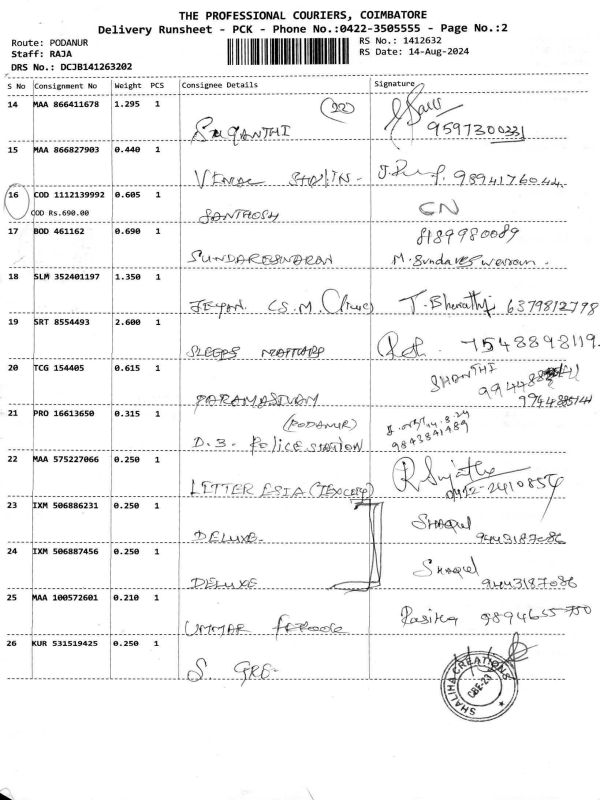 THE PROFESSIONAL COURIERS, COIMBATORE
Delivery Runsheet - PCK - Phone No.:0422-3505555 - Page No.:2
Route: PODANUR
RS No.: 1412632
Staff: RAJA
RS Date: 14-Aug-2024
DRS No.: DCJB141263202
S No Consignment No Weight PCS Consignee Details Signature
14 MAA 866411678 1.295 1
15 MAA 866827903 0.440 1
9894176044
16 COD 1112139992 0.605 1
COD Rs.690.00
SANTHOSH CN
17 BOD 461162 0.690 1
8189980089
SUNDARESWARAN M. Sundareswaran.
18 SLM 352401197 1.350 1
(S.M. Clinic) T. Bharathy 6379812798
19 SRT 8554493 2.600 1
7548898119
20 TCG 154405 0.615 1
SHANTHI
PARAMASIVAM 9944885141
21 PRO 16613650 0.315 1
(PODANUR)
D.3. POLICE STATION 9843841489
22 MAA 575227066 0.250 1
R Sujatha
LETTER ESIA 0422-2410854
23 IXM 506886231 0.250 1
DELUXE 9443187086
24 IXM 506887456 0.250 1
DELUXE 9443187086
25 MAA 100572601 0.210 1
Rasika
UMMAR FAROOK
26 KUR 531519425 0.250 1
S. GRE
SHALIHA CREATIONS
CBE-23